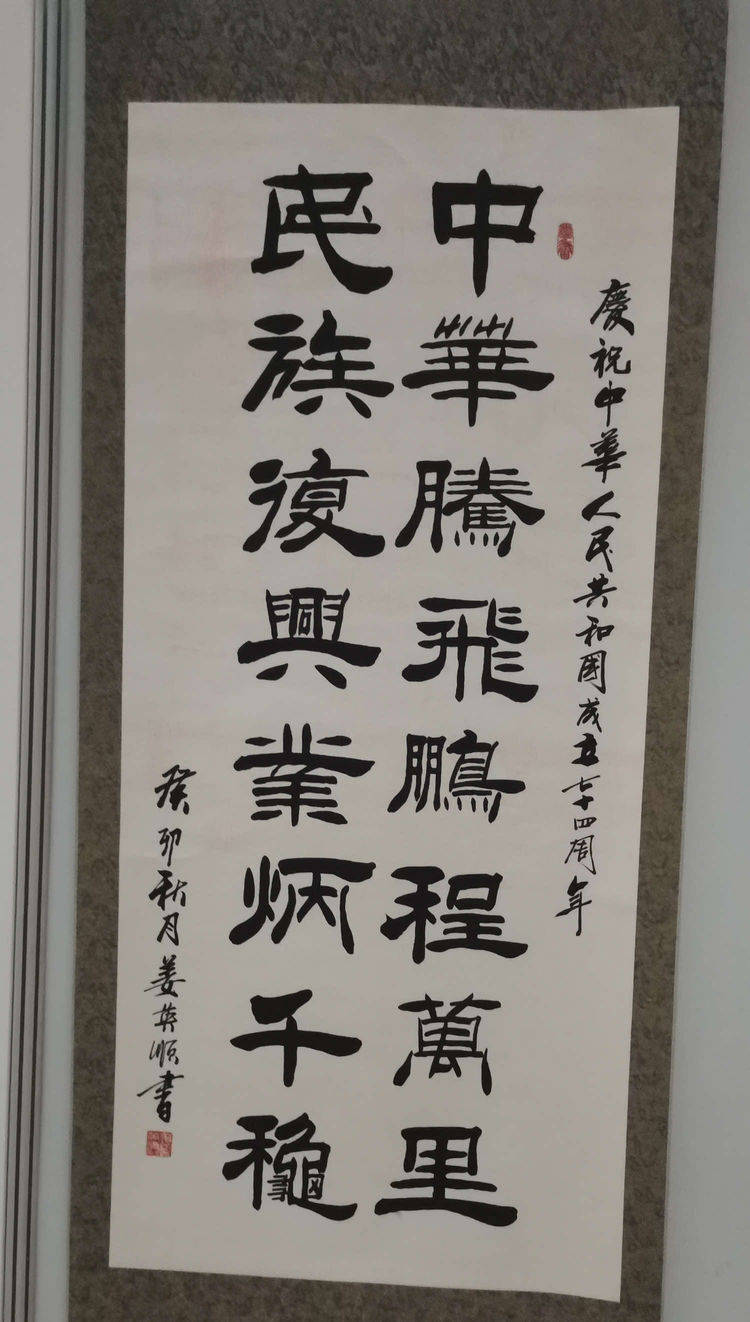 慶祝中華人民共和國成立七十四周年
中華騰飛鵬程萬里
民族復興業炳千龝
癸卯秋月姜英順書